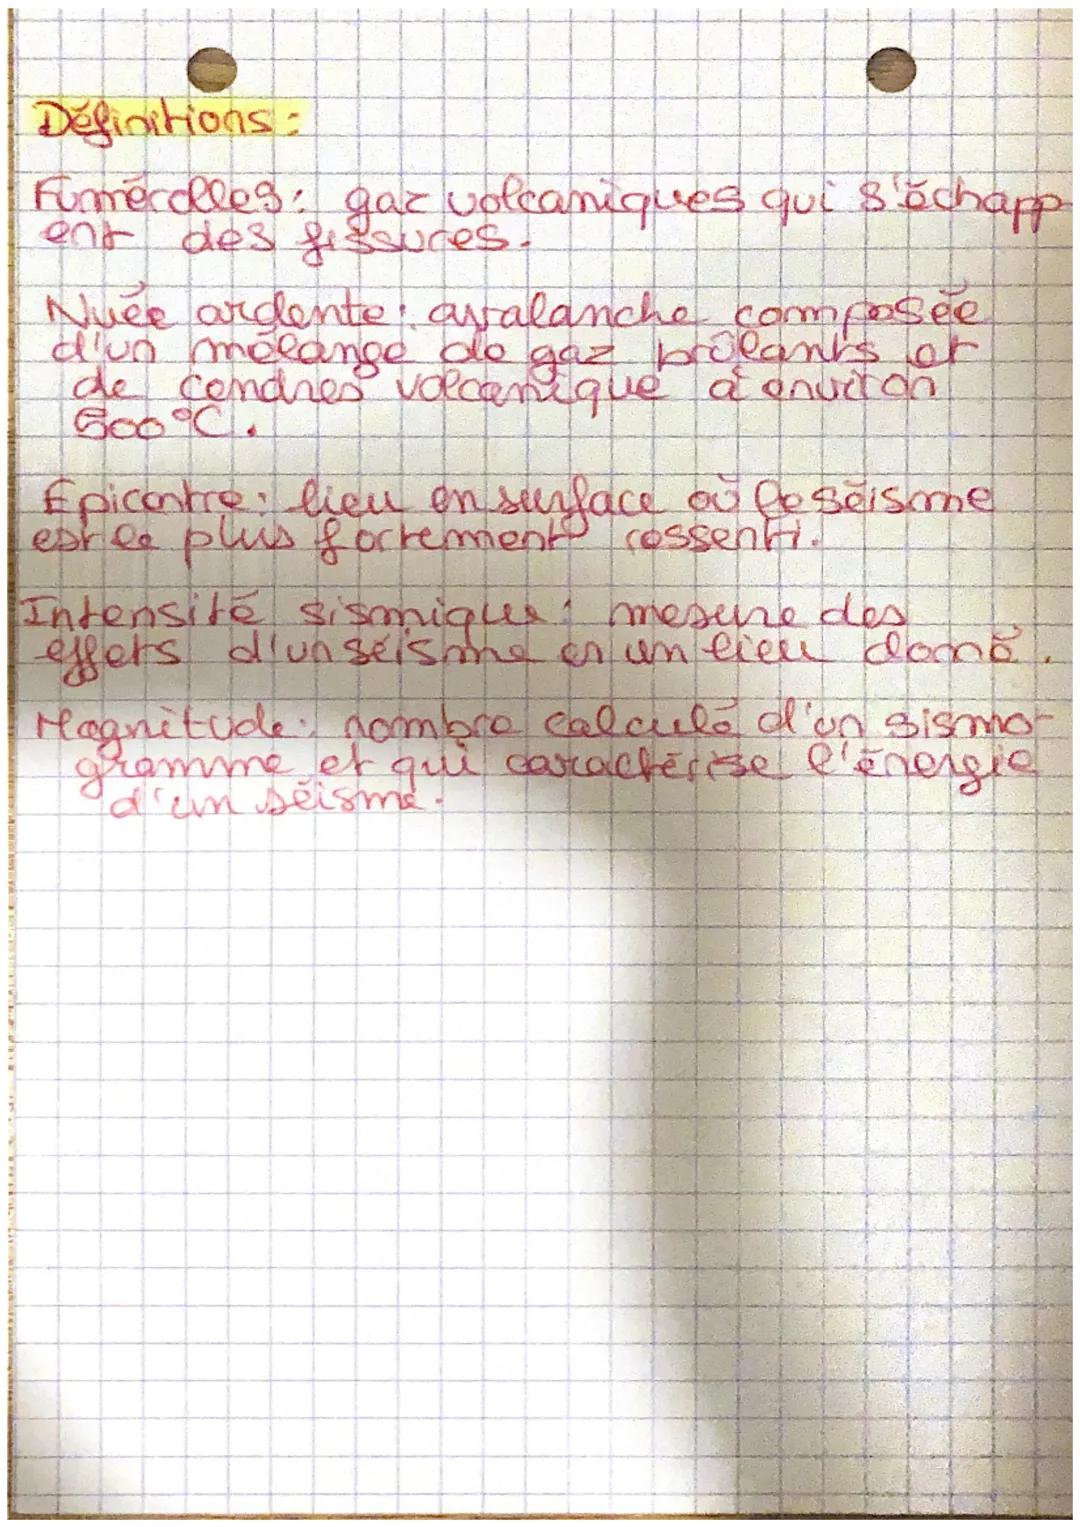 Définitions :
Fumérolles : gaz volcaniques qui s'échapp
ent des fissures.
Nuée ardente : avalanche composée
d'un mélange de gaz brûlants et
de cendres volcanique à environ
500°C.
Épicentre : lieu en surface où le séisme
est le plus fortement ressenti.
Intensité sismique : mesure des
effets d'un séisme en un lieu donné.
Magnitude : nombre calculé d'un sismo-
gramme et qui caractérise l'énergie
d'un séisme.